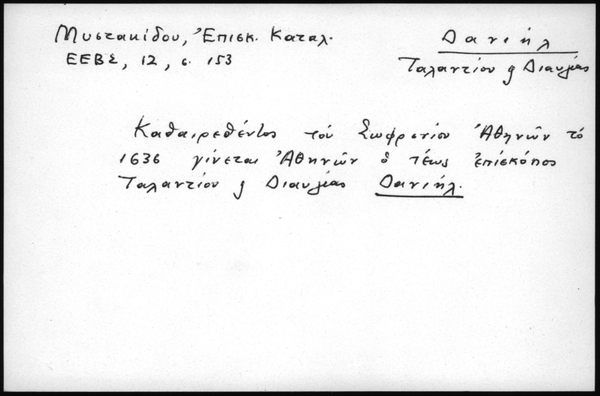 Μυστακίδου, Ἐπισκ. Καταλ.
ΕΕΒΣ, 12, σ. 153
Δανιήλ
Ταλαντίου ϗ Διαυλίας
Καθαιρεθέντος τοῦ Σωφρονίου Ἀθηνῶν τὸ
1636 γίνεται Ἀθηνῶν ὁ τέως ἐπίσκοπος
Ταλαντίου ϗ Διαυλίας Δανιήλ.